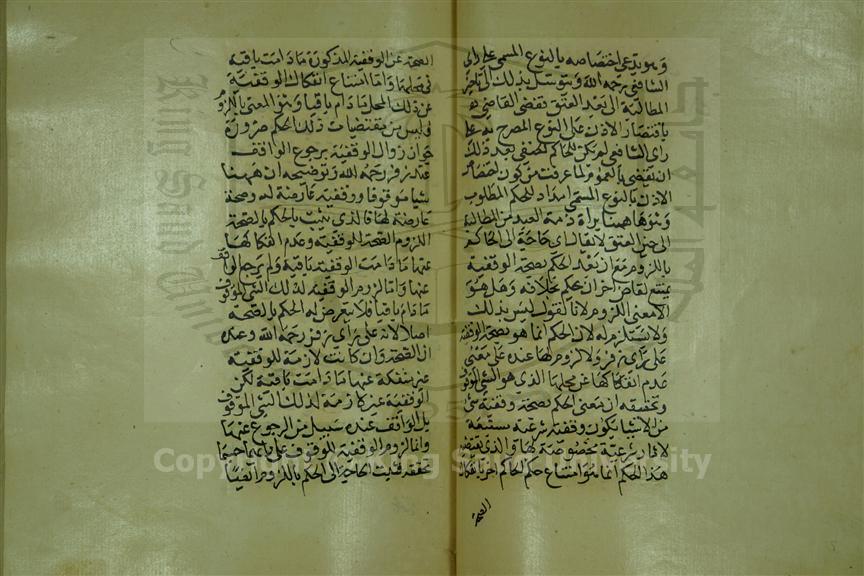 وهو يدعي اختصاصه بالنوع المسمى على رأي
الشافعي رحمه الله ويتوسل بذلك إلى
المطالبة إلى بعد العتق نقضى القاضي
باقتصار الاذن على النوع المصرح به على
رأى الشافعي لم يكن للحاكم الحنفي بعد ذلك
ان يقضي بالعموم لما عرفت من كون اختصار
الاذن بالنوع المسمى للحكم المطلوب
وهو هاهنا براءة ذمة العبد من المطالبة
الى حين العتق لا يقال اي حاجة الى الحاكم
باللزوم مع ان بعد الحكم بصحة الوقفية
يمتنع لقاض اخر ان يحكم بخلافه وهل هو
الا معنى اللزوم لانا نقول ليس بذلك
ولا يستلزم له لان الحكم انما هو بصحة الوقفية
على رأى زفر ولا لزوم لها عنده على معنى
عدم انفكاكها عن محلها الذي هو الشي الموقوف
وتحقيقه ان معنى الحكم بصحة وقفية شي
من الاشيا بكون وقفيته شرعية مستتبعة
لاثار شرعية مخصوصة لها والذي يقتضيه
هذا الحكم انما هو امتناع حكم الحاكم اخر بانفكاك
الصحة
الصحة عن الوقفية المذكورة مادامت باقية
في محلها واما امتناع انفكاك الوقفية
عن ذلك المحل مادام باقيا وهو المعنى باللزوم
فليس من مقتضيات ذلك الحكم ضرورة
جواز زوال الوقفية برجوع الواقف
عند زفر رحمه الله وتوضيحه ان ههنا
شيا موقوفا ووقفية عارضة له وصحة
عارضة لها فالذي يثبت بالحكم بالصحة
اللزوم الصحة للوقفية وعدم انفكاكها
عنها مادامت الوقفية باقية ولم يرجع الواقف
عنها واما لزوم الوقفية لذلك الشي الموقوف
مادام باقيا فلا تعرض له الحكم بالصحة
اصلا لانه على رأى زفر رحمه الله وعنده
ان الصحة وان كانت لازمة للوقفية
غير منفكة عنها مادامت باقية لكن
الوقفية غير لازمة لذلك الشي الموقوف
بل الواقف عنده سبيل من الرجوع عنها
وانما لزوم الوقفية للموقوف على
تحققه فليست الحاجة الى الحكم باللزوم ايضا
Copyright © King Saud University